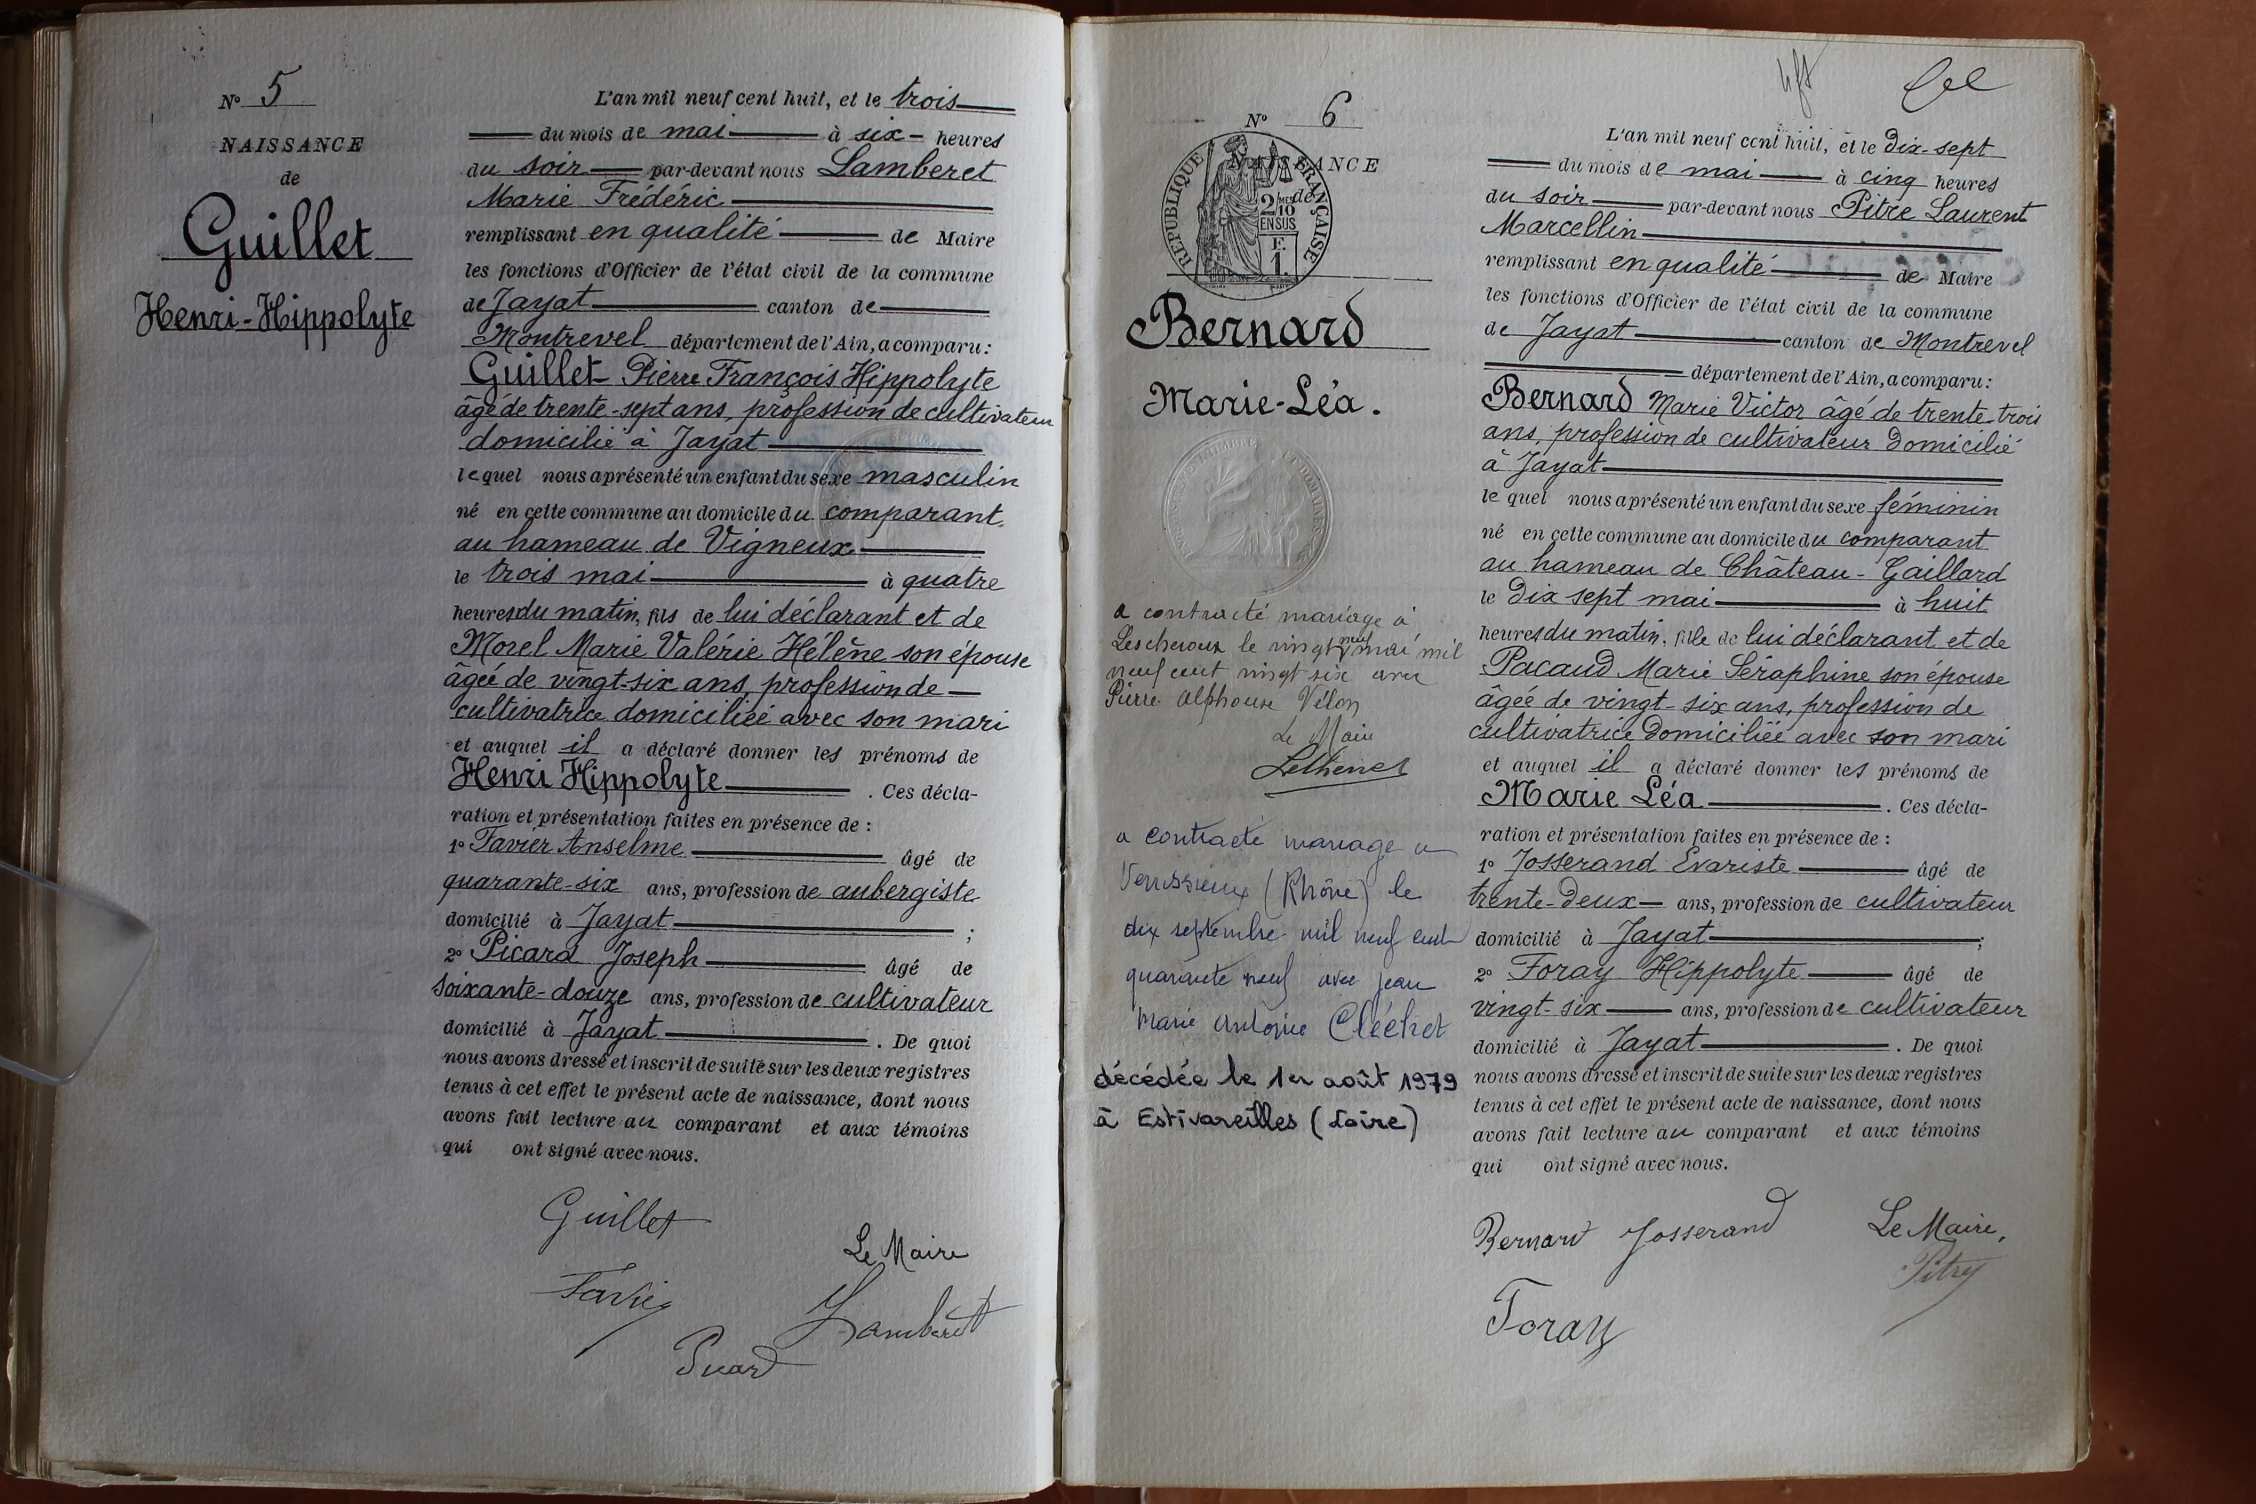 N° 5
NAISSANCE
de
Guillet
Henri-Hippolyte
L'an mil neuf cent huit, et le trois
du mois de mai à six heures
du soir par-devant nous Lamberet
Marie Frédéric
remplissant en qualité de Maire
les fonctions d'Officier de l'état civil de la commune
de Jayat canton de
Montrevel département de l'Ain, a comparu :
Guillet Pierre François Hippolyte
âgé de trente-sept ans, profession de cultivateur
domicilié à Jayat
lequel nous a présenté un enfant du sexe masculin
né en cette commune au domicile du comparant,
au hameau de Vigneux
le trois mai à quatre
heures du matin, fils de lui déclarant et de
Morel Marie Valérie Hélène son épouse
âgée de vingt-six ans, profession de
cultivatrice domiciliée avec son mari
et auquel il a déclaré donner les prénoms de
Henri Hippolyte . Ces décla-
ration et présentation faites en présence de :
1° Favier Anselme âgé de
quarante-six ans, profession de aubergiste
domicilié à Jayat ;
2° Picard Joseph âgé de
soixante-douze ans, profession de cultivateur
domicilié à Jayat . De quoi
nous avons dressé et inscrit de suite sur les deux registres
tenus à cet effet le présent acte de naissance, dont nous
avons fait lecture au comparant et aux témoins
qui ont signé avec nous.
Guillet
Le Maire
Favier
Lamberet
Picard
N° 6
NAISSANCE
de
REPUBLIQUE FRANÇAISE
2/10 MES
EN SUS
F.
1.
Bernard
Marie-Léa.
a contracté mariage à
Lescheroux le vingt neuf mai mil
neuf cent vingt six avec
Pierre Alphonse Vélon
Le Maire
a contracté mariage à
Venissieux (Rhône) le
dix septembre mil neuf cent
quarante neuf avec Jean
Marie Antoine Cléchet
décédée le 1er août 1979
à Estivareilles (Loire)
L'an mil neuf cent huit, et le dix-sept
du mois de mai à cinq heures
du soir par-devant nous Pitre Laurent
Marcellin
remplissant en qualité de Maire
les fonctions d'Officier de l'état civil de la commune
de Jayat canton de Montrevel
département de l'Ain, a comparu :
Bernard Marie Victor âgé de trente-trois
ans, profession de cultivateur domicilié
à Jayat
lequel nous a présenté un enfant du sexe féminin
né en cette commune au domicile du comparant
au hameau de Château-Gaillard
le dix sept mai à huit
heures du matin, fille de lui déclarant et de
Pacaud Marie Séraphine son épouse
âgée de vingt-six ans, profession de
cultivatrice domiciliée avec son mari
et auquel il a déclaré donner les prénoms de
Marie Léa . Ces décla-
ration et présentation faites en présence de :
1° Josserand Evariste âgé de
trente-deux ans, profession de cultivateur
domicilié à Jayat ;
2° Foray Hippolyte âgé de
vingt-six ans, profession de cultivateur
domicilié à Jayat . De quoi
nous avons dressé et inscrit de suite sur les deux registres
tenus à cet effet le présent acte de naissance, dont nous
avons fait lecture au comparant et aux témoins
qui ont signé avec nous.
Bernard Josserand Le Maire,
Pitre
Foray